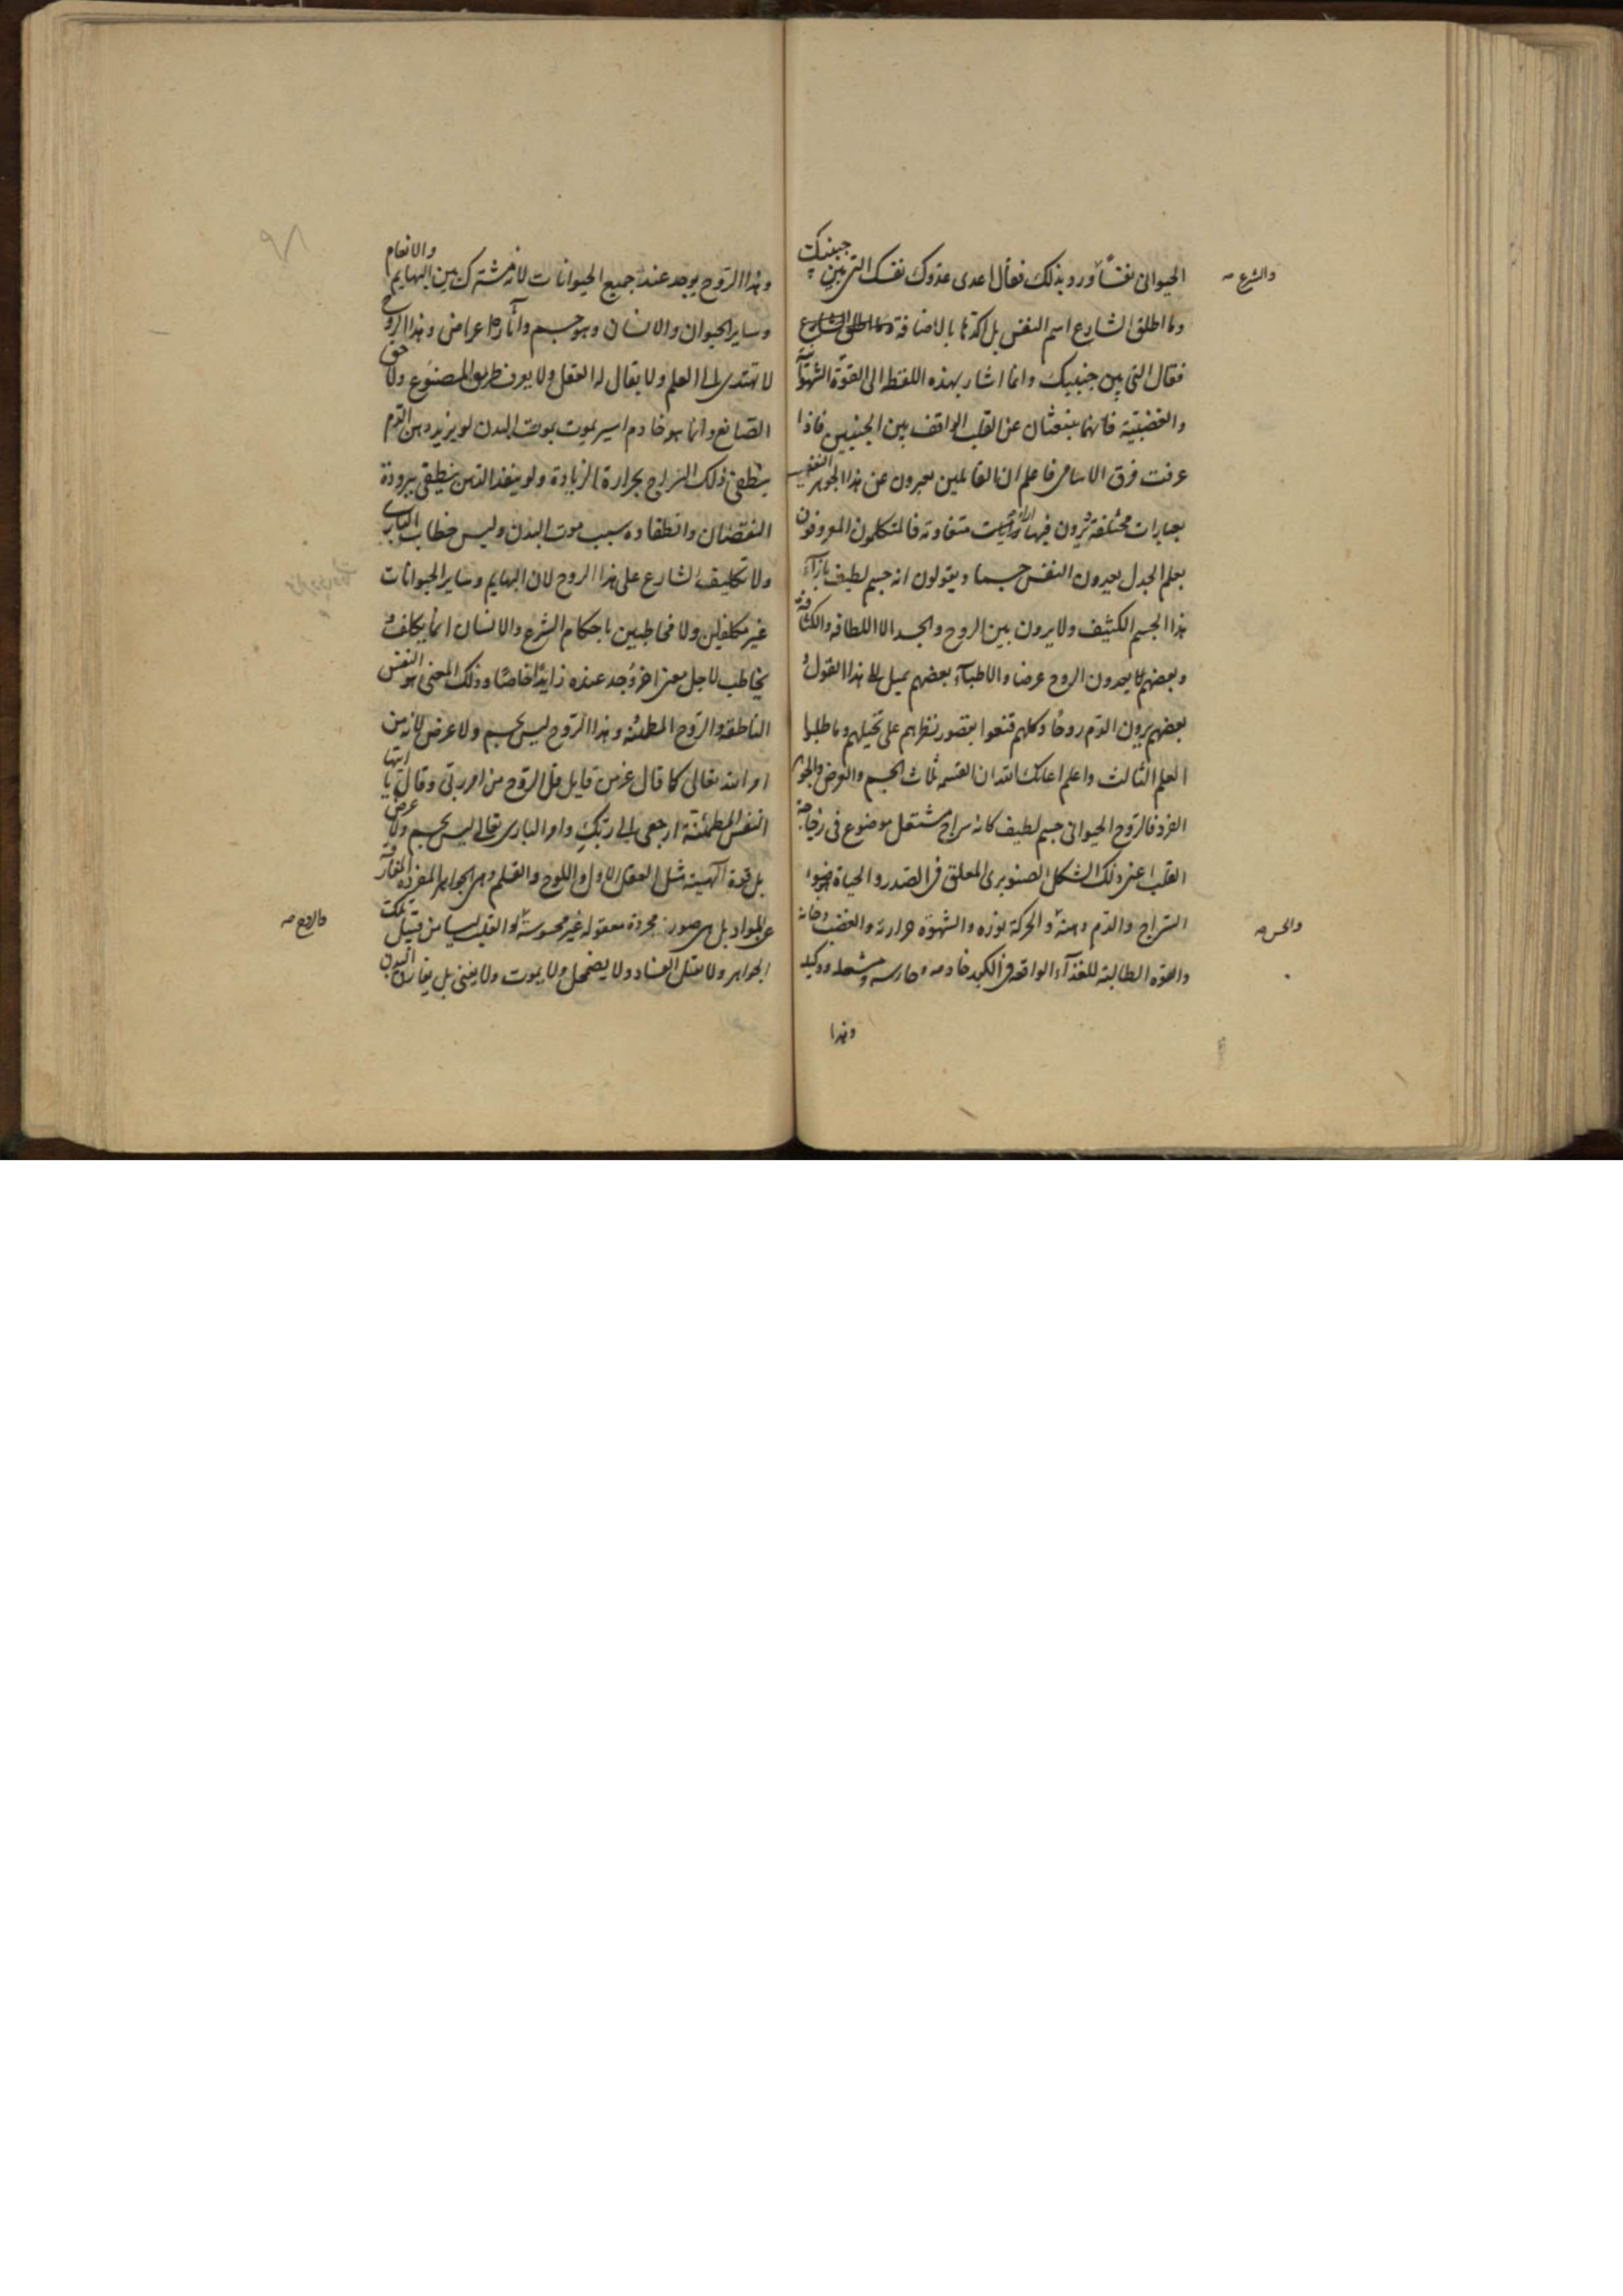 الحيوانى نفسًا ورد بذلك فقال اعدى عدوك نفسك التى بين جنبيك
والشرع صه
وما اطلق الشارع اسم النفس بل اكدها بالاضافة وما اطلق الشارع
فقال التى بين جنبيك وانما اشار بهذه اللفظه الى القوة الشهوانية
والغضبية فانهما ينبعثان عن القلب الواقف بين الجنبين فاذا
عرفت فرق الاسامى فاعلم ان القائلين يعبرون عن هذا الجوهر النفيس
بعبارات مختلفة ويرون فيها آراء متفاوتة فالمتكلمون المعروفون
بعلم الجدل يعدون النفس جسما ويقولون انه جسم لطيف بازآء
هذا الجسم الكثيف ولا يرون بين الروح والجسد الا اللطافة والكثافة
وبعضهم يعدون الروح عرضا والاطبآء بعضهم يميل الى هذا القول و
بعضهم يرون الدم روحًا وكلهم قنعوا بقصور نظرهم على تخيلهم وما طلبوا
العلم الثالث واعلم اعانك الله ان القسمة ثلاث الجسم والعرض والجوهر
الفرد فالروح الحيوانى جسم لطيف كانه سراج مشتعل موضوع فى زجاجة
القلب اعنى ذلك الشكل الصنوبرى المعلق فى الصدر والحياة ضوء
السراج والدم دهنه والحركة نوره والشهوة حرارته والغضب دخانه
والحس صه
والقوه الطالبة للغذآء الواقعه فى الكبد خادمه وحارسه ووكيله
وهذا
وهذا الروح يوجد عند جميع الحيوانات لانه مشترك بين البهايم والانعام
وساير الحيوان والانسان وهو جسم وآثاره اعراض وهذا الروح
لا تهتدى الى العلم ولا يقال له العقل ولا يعرف طريق المصنوع ولا حق
الصانع وانما هو خادم اسير يموت بموت البدن لو يزيد دهن الدم
ينطفى ذلك السراج بحرارة الزيادة ولو ينفذ الدهن ينطفى ببرودة
النقصان وانطفاده سبب موت البدن وليس خطاب البارى
ولا تكليف الشارع على هذا الروح لان البهايم وساير الحيوانات
غير مكلفين ولا مخاطبين باحكام الشرع والانسان انما يكلف و
يخاطب لاجل معنى اخر وجد عنده زايدًا خاصًا وذلك المعنى هو النفس
الناطقة والروح المطمئنه وهذا الروح ليس بجسم ولا عرض لانه من
امر الله تعالى كما قال عز من قايل قل الروح من امر ربى وقال يا ايتها
النفس المطمئنة ارجعى الى ربك وامر البارى تعالى ليس بجسم ولا عرض
بل قوة آلهية مثل العقل الاول واللوح والقلم وهى الجواهر المفردة المفارقة
عن المواد بل هى صور مجردة معقوله غير محسوسة والقلب من قبيل تلك
فالروح صه
الجواهر ولا يقبل الفساد ولا يضمحل ولا يموت ولا يفنى بل يفارق البدن